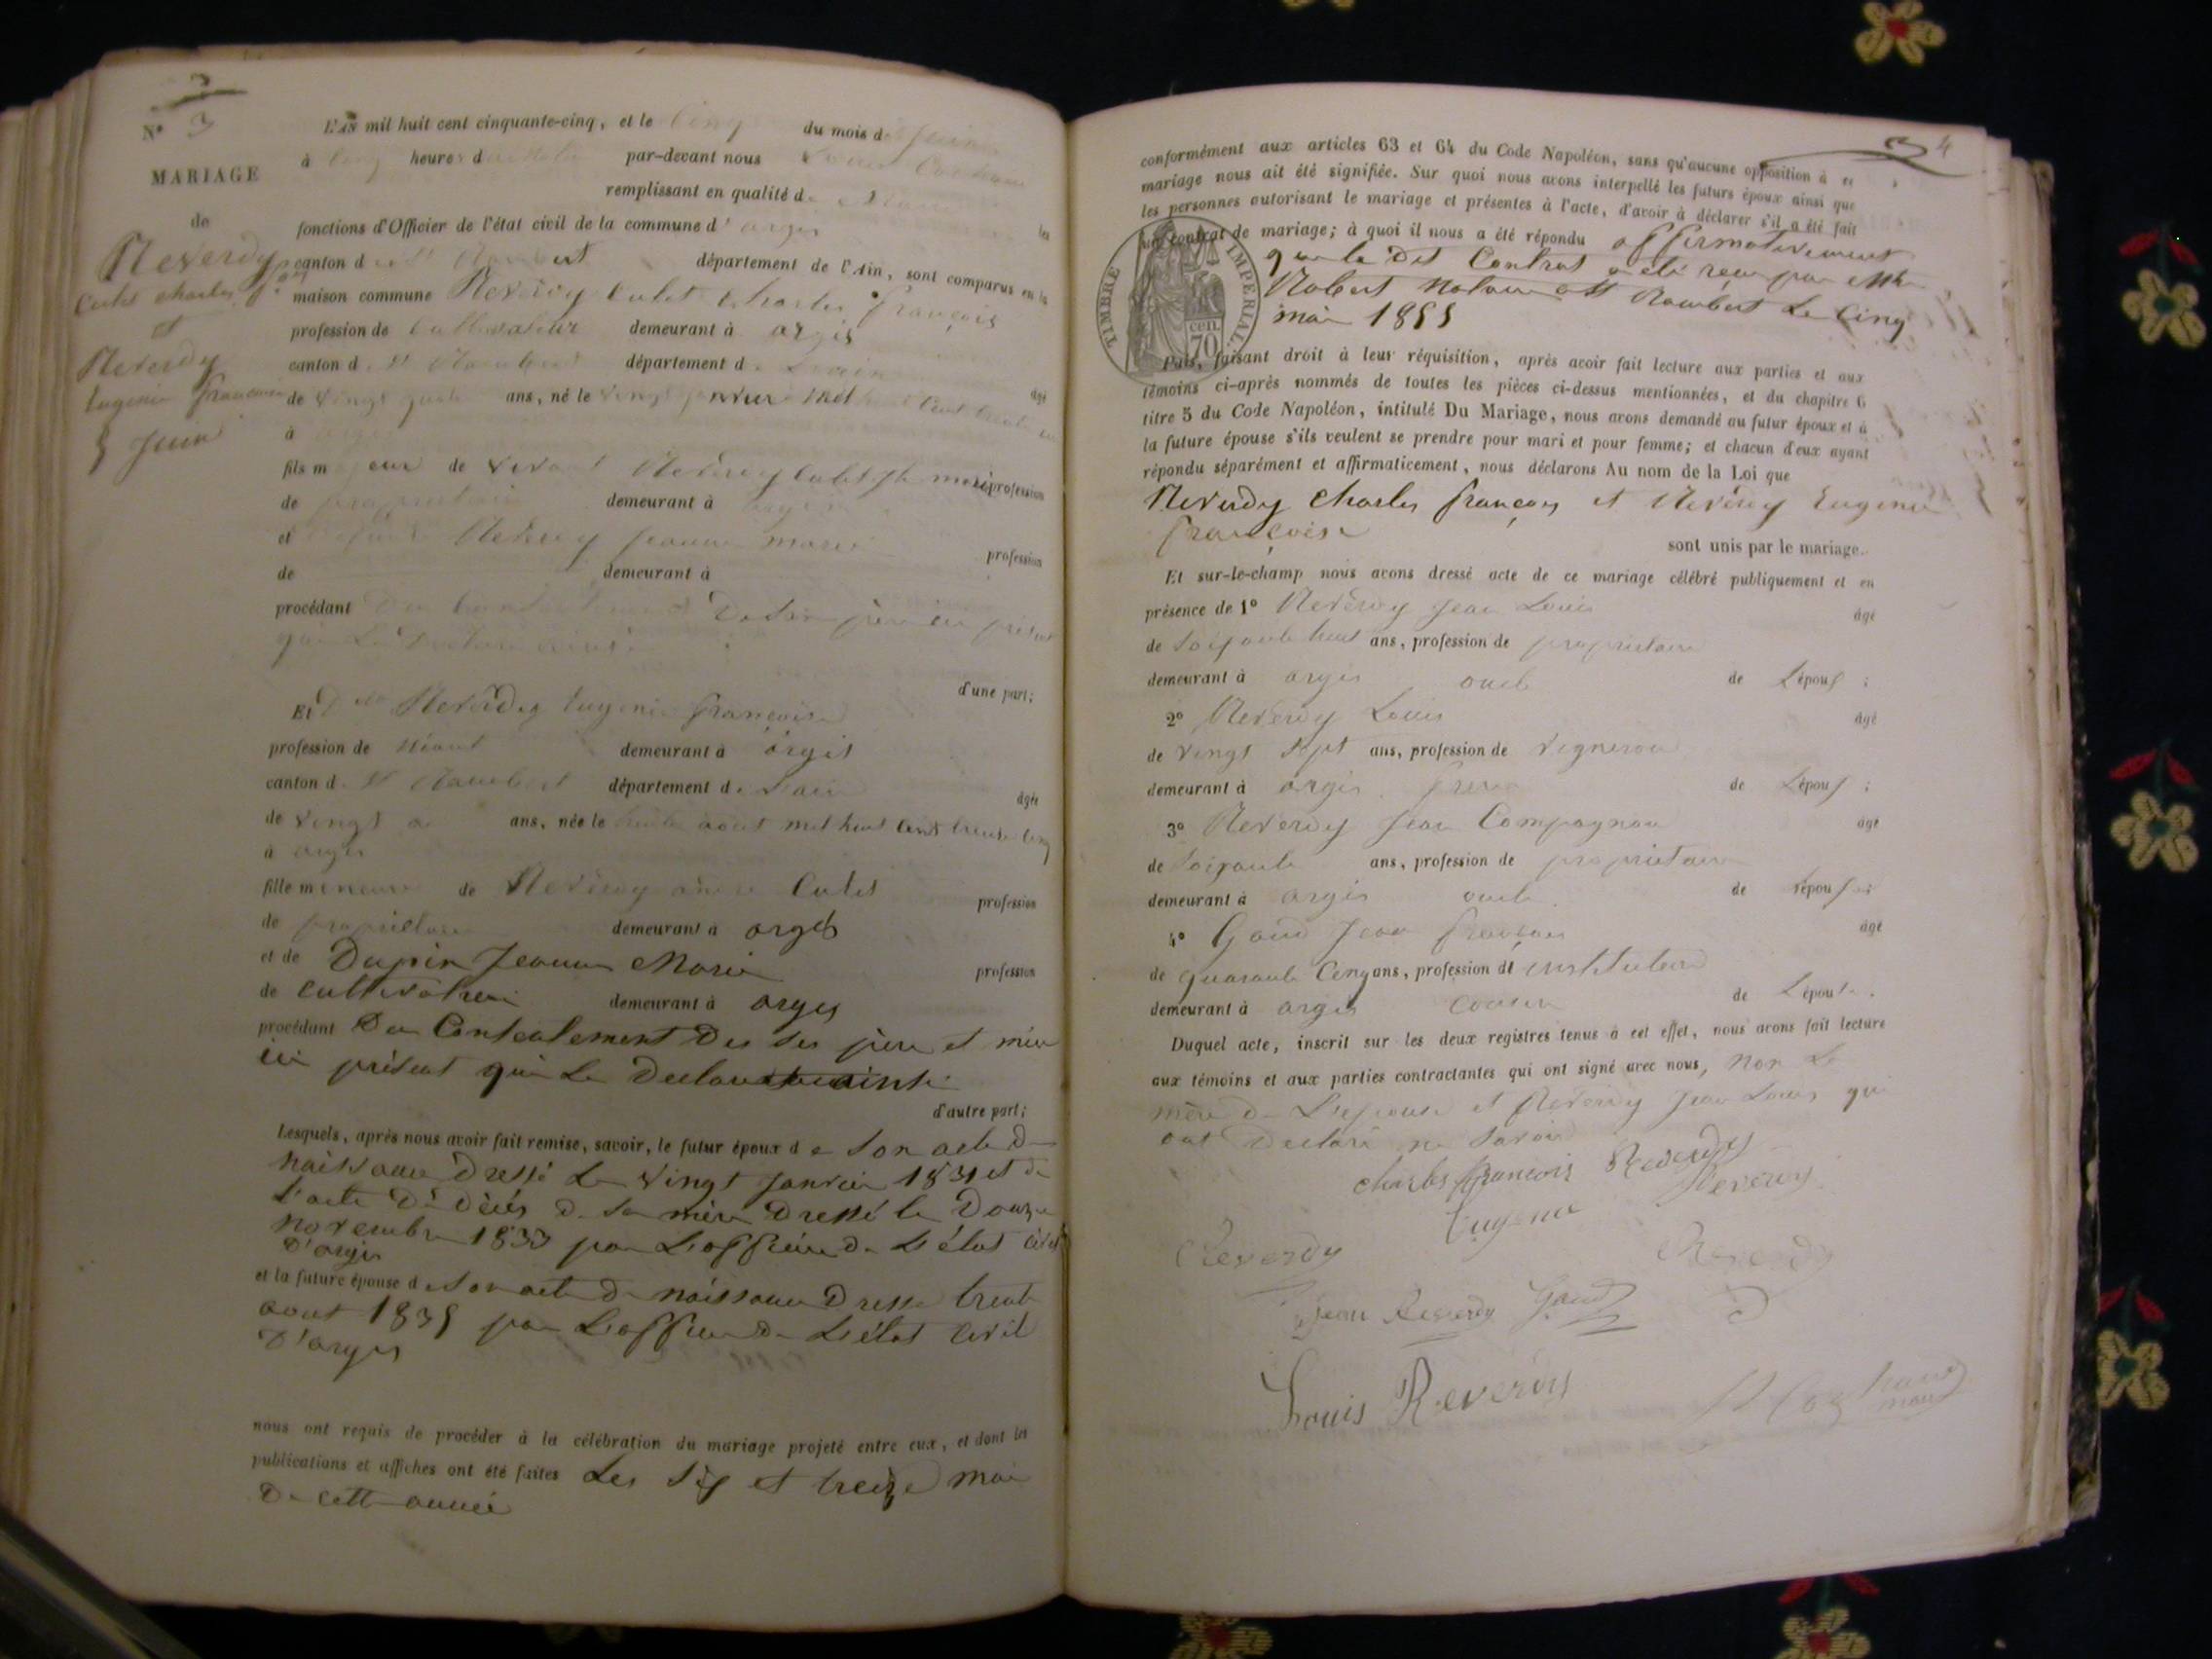 3
N° 3
MARIAGE
de
Reverdy
Culet charles f.çois
et
Reverdy
Eugenie françoise
5 Juin
L'AN mil huit cent cinquante-cinq, et le Cinq du mois de Juin
à Cinq heures du par-devant nous
remplissant en qualité de Maire
fonctions d'Officier de l'état civil de la commune d' argis les
canton de St Rambert département de l'Ain, sont comparus en la
maison commune Reverdy Culet Charles françois
profession de Cultivateur demeurant à argis
canton de St Rambert département de Lain âgé
de vingt quatre ans, né le vingt janvier mil huit Cent trente un
à argis
fils majeur de vivant Reverdy Culet profession
de proprietaire demeurant à argis
et defunte Reverdy Jeanne marie profession
de demeurant à
procédant Du Consentement de Son père ici présent
qui Le Declare ainsi
d'une part;
Et Dlle Reverdy Eugenie françoise
profession de Néant demeurant à argis
canton de St Rambert département de Lain âgée
de vingt ans, née le trente aout mil huit Cent trente Cinq
à argis
fille mineure de Reverdy Culet profession
de proprietaire demeurant à argis
et de Dupin Jeanne Marie profession
de Cultivatrice demeurant à argis
procédant Du Consentement Des Ses père et mère
ici présent qui Le Declare ainsi
d'autre part;
Lesquels, après nous avoir fait remise, savoir, le futur époux de Son acte De
naissance Dressé Le vingt Janvier 1831 et De
L'acte De Décés De Sa mère Dressé le Douze
novembre 1833 par L'officier De L'état Civil
D'argis
et la future épouse de Son acte De naissance Dressé trente
aout 1835 par L'officier De L'état Civil
D'argis
nous ont requis de procéder à la célébration du mariage projeté entre eux, et dont les
publications et affiches ont été faites Les Six et treize mai
De cette année
3 4
conformément aux articles 63 et 64 du Code Napoléon, sans qu'aucune opposition à ce
mariage nous ait été signifiée. Sur quoi nous avons interpellé les futurs époux ainsi que
les personnes autorisant le mariage et présentes à l'acte, d'avoir à déclarer s'il a été fait
un contrat de mariage; à quoi il nous a été répondu affirmativement
que le Dit Contrat a été reçu par Me
Robert Notaire a St Rambert Le Cinq
mai 1855
TIMBRE IMPERIAL
70 cen.
Puis, faisant droit à leur réquisition, après avoir fait lecture aux parties et aux
témoins ci-après nommés de toutes les pièces ci-dessus mentionnées, et du chapitre 6
titre 5 du Code Napoléon, intitulé Du Mariage, nous avons demandé au futur époux et à
la future épouse s'ils veulent se prendre pour mari et pour femme; et chacun d'eux ayant
répondu séparément et affirmativement, nous déclarons Au nom de la Loi que
Reverdy Charles françois et Reverdy Eugenie
françoise
sont unis par le mariage.
Et sur-le-champ nous avons dressé acte de ce mariage célébré publiquement et en
présence de 1° Reverdy Jean Louis âgé
de Soixante huit ans, profession de proprietaire
demeurant à argis oncle de Lépoux;
2° Reverdy Louis âgé
de vingt Sept ans, profession de vigneron
demeurant à argis frere de Lépoux;
3° Reverdy Jean Compagnon âgé
de Soixante ans, profession de proprietaire
demeurant à argis oncle de lépouse;
4° Gaud Jean français âgé
de quarante Cinq ans, profession de instituteur
demeurant à argis cousin de Lépouse.
Duquel acte, inscrit sur les deux registres tenus à cet effet, nous avons fait lecture
aux témoins et aux parties contractantes qui ont signé avec nous, non La
mère De L'epouse et Reverdy Jean Louis qui
ont Declaré ne Savoir
charles françois Reverdy
Eugenie Reverdy
Reverdy Reverdy
Jean Reverdy Gaud
Louis Reverdy